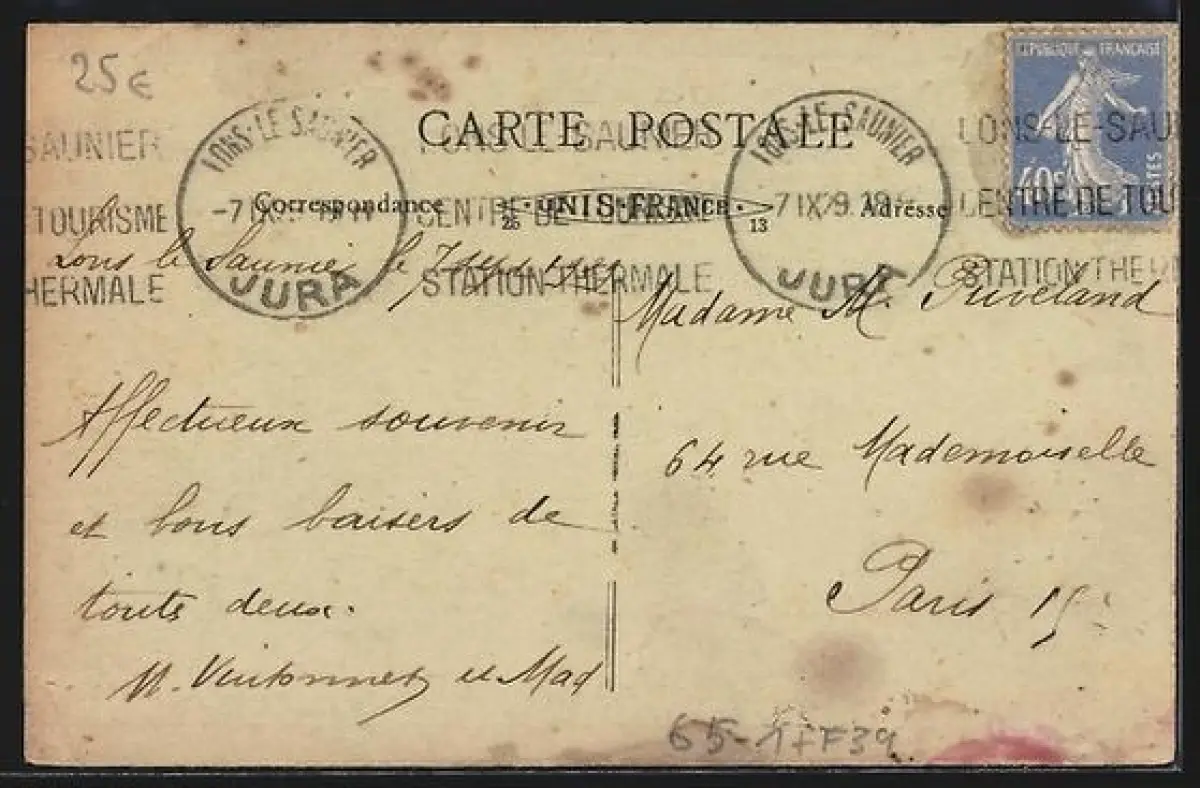 25€
CARTE POSTALE
RÉPUBLIQUE FRANÇAISE
40c POSTES
LONS-LE-SAUNIER
JURA
LONS-LE-SAUNIER
7 IX 29
JURA
SAUNIER
TOURISME
THERMALE
LONS-LE-SAUNIER
CENTRE DE TOURISME
STATION THERMALE
LONS-LE-SAU
CENTRE DE TOU
STATION THERM
Correspondance
25 UNIS-FRANCE 13
Adresse
Lons le Saunier le 7
Affectueux souvenir
et bons baisers de
touts deux.
M. et Mad
Madame M.
64 rue Mademoiselle
Paris 15e
65-1FF39